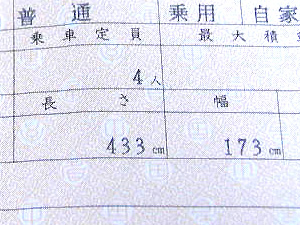 普通 乗用 自家
乗車定員 最大積
4人
長さ 幅
433cm 173cm